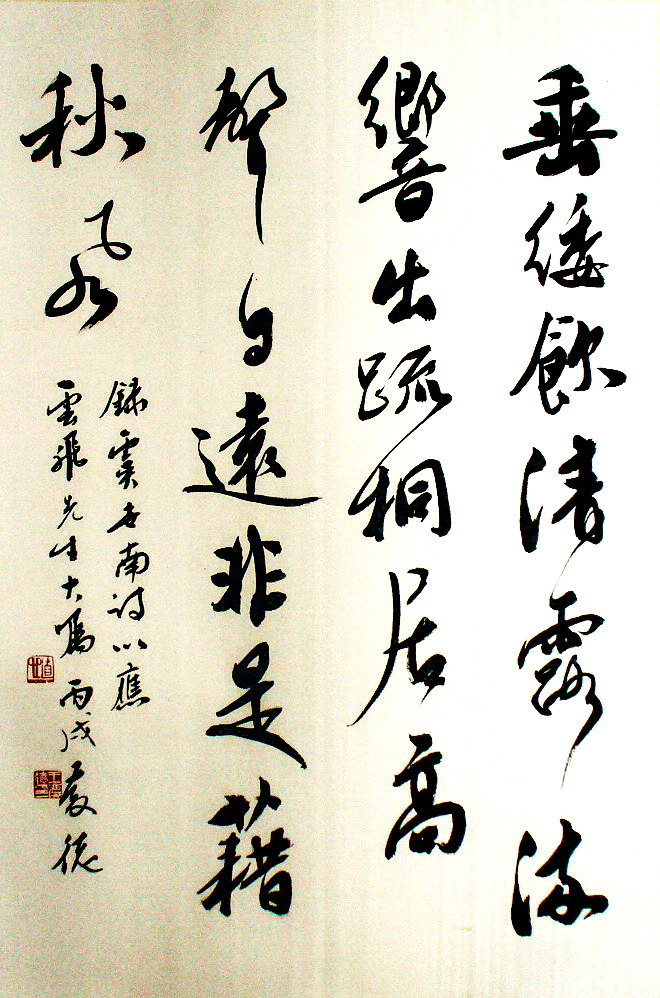 垂緌飲清露流
響出疏桐居高
聲自遠非是藉
秋風
錄虞世南詩以應
雲飛先生大囑 丙戌